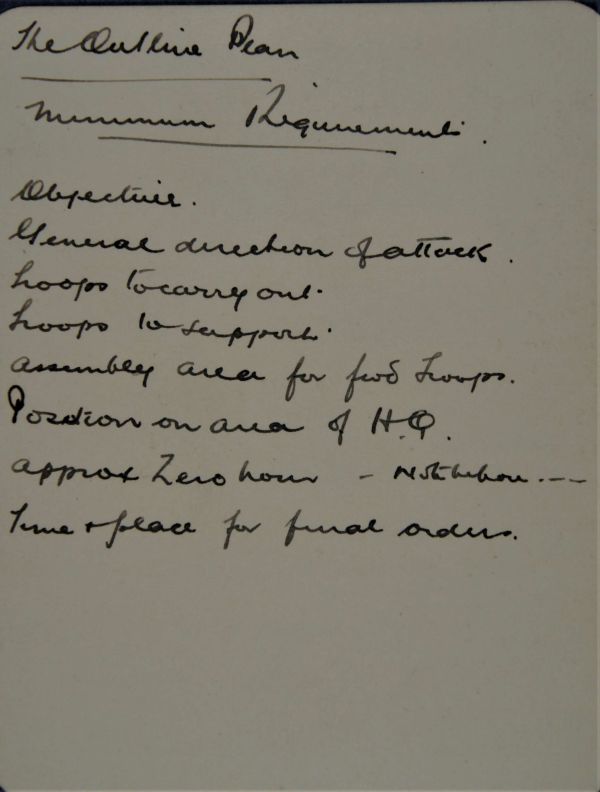 The Outline Plan
Minimum Requirements.
Objective.
General direction of attack.
Troops to carry out.
Troops to support.
Assembly area for fwd troops.
Position or area of H.Q.
Approx Zero hour - Not before ---
Time & place for final orders.